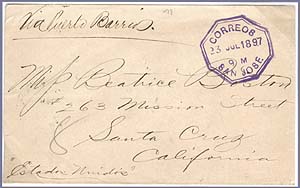 Via Puerto Barrios.
CORREOS
23 JUL 1897
9 M
SAN JOSE
Beatrice
263 Mission Street
Santa Cruz
California
"Estados Unidos"